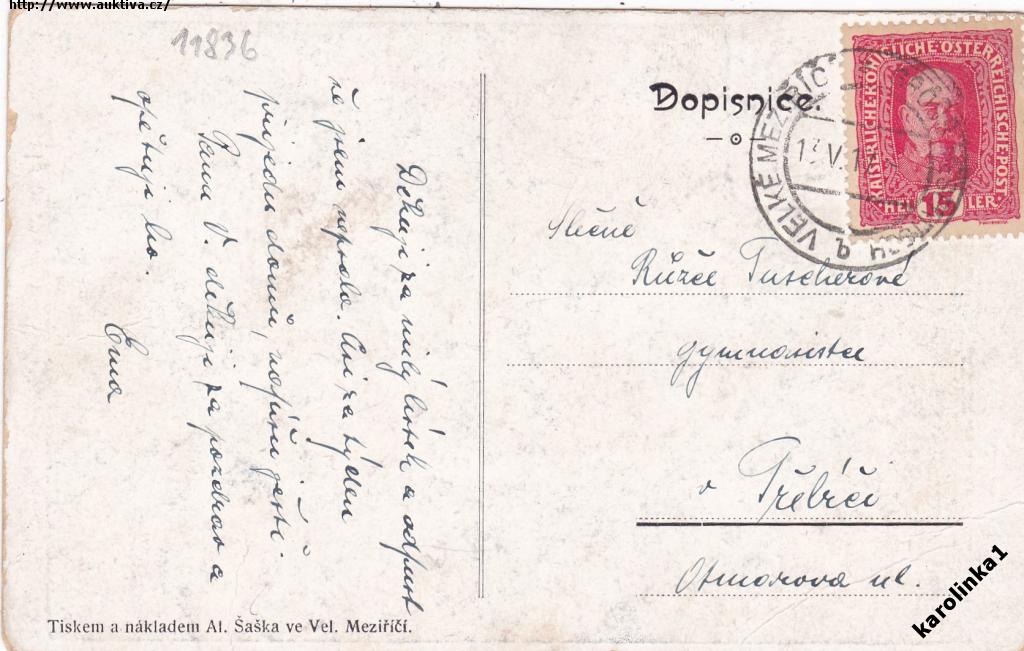 http://www.auktiva.cz/
11836
Dopisnice.
VELKÉ MEZIŘÍČ
13 V 1
KAISERLICHE KÖNIGLICHE ÖSTERREICHISCHE POST
HELLER
15
Slečně
Růžče Tuscherové
gymnasistce
v Třebíči
Otmarova ul.
Děkuji za milý lístek a odpusť
že jsem nepsala. Asi za týden
přijedu domů, napíšu ještě.
Panu V. děkuji za pozdrav a
opětuji ho.
Ema
Tiskem a nákladem Al. Šaška ve Vel. Meziříčí.
karolinka1